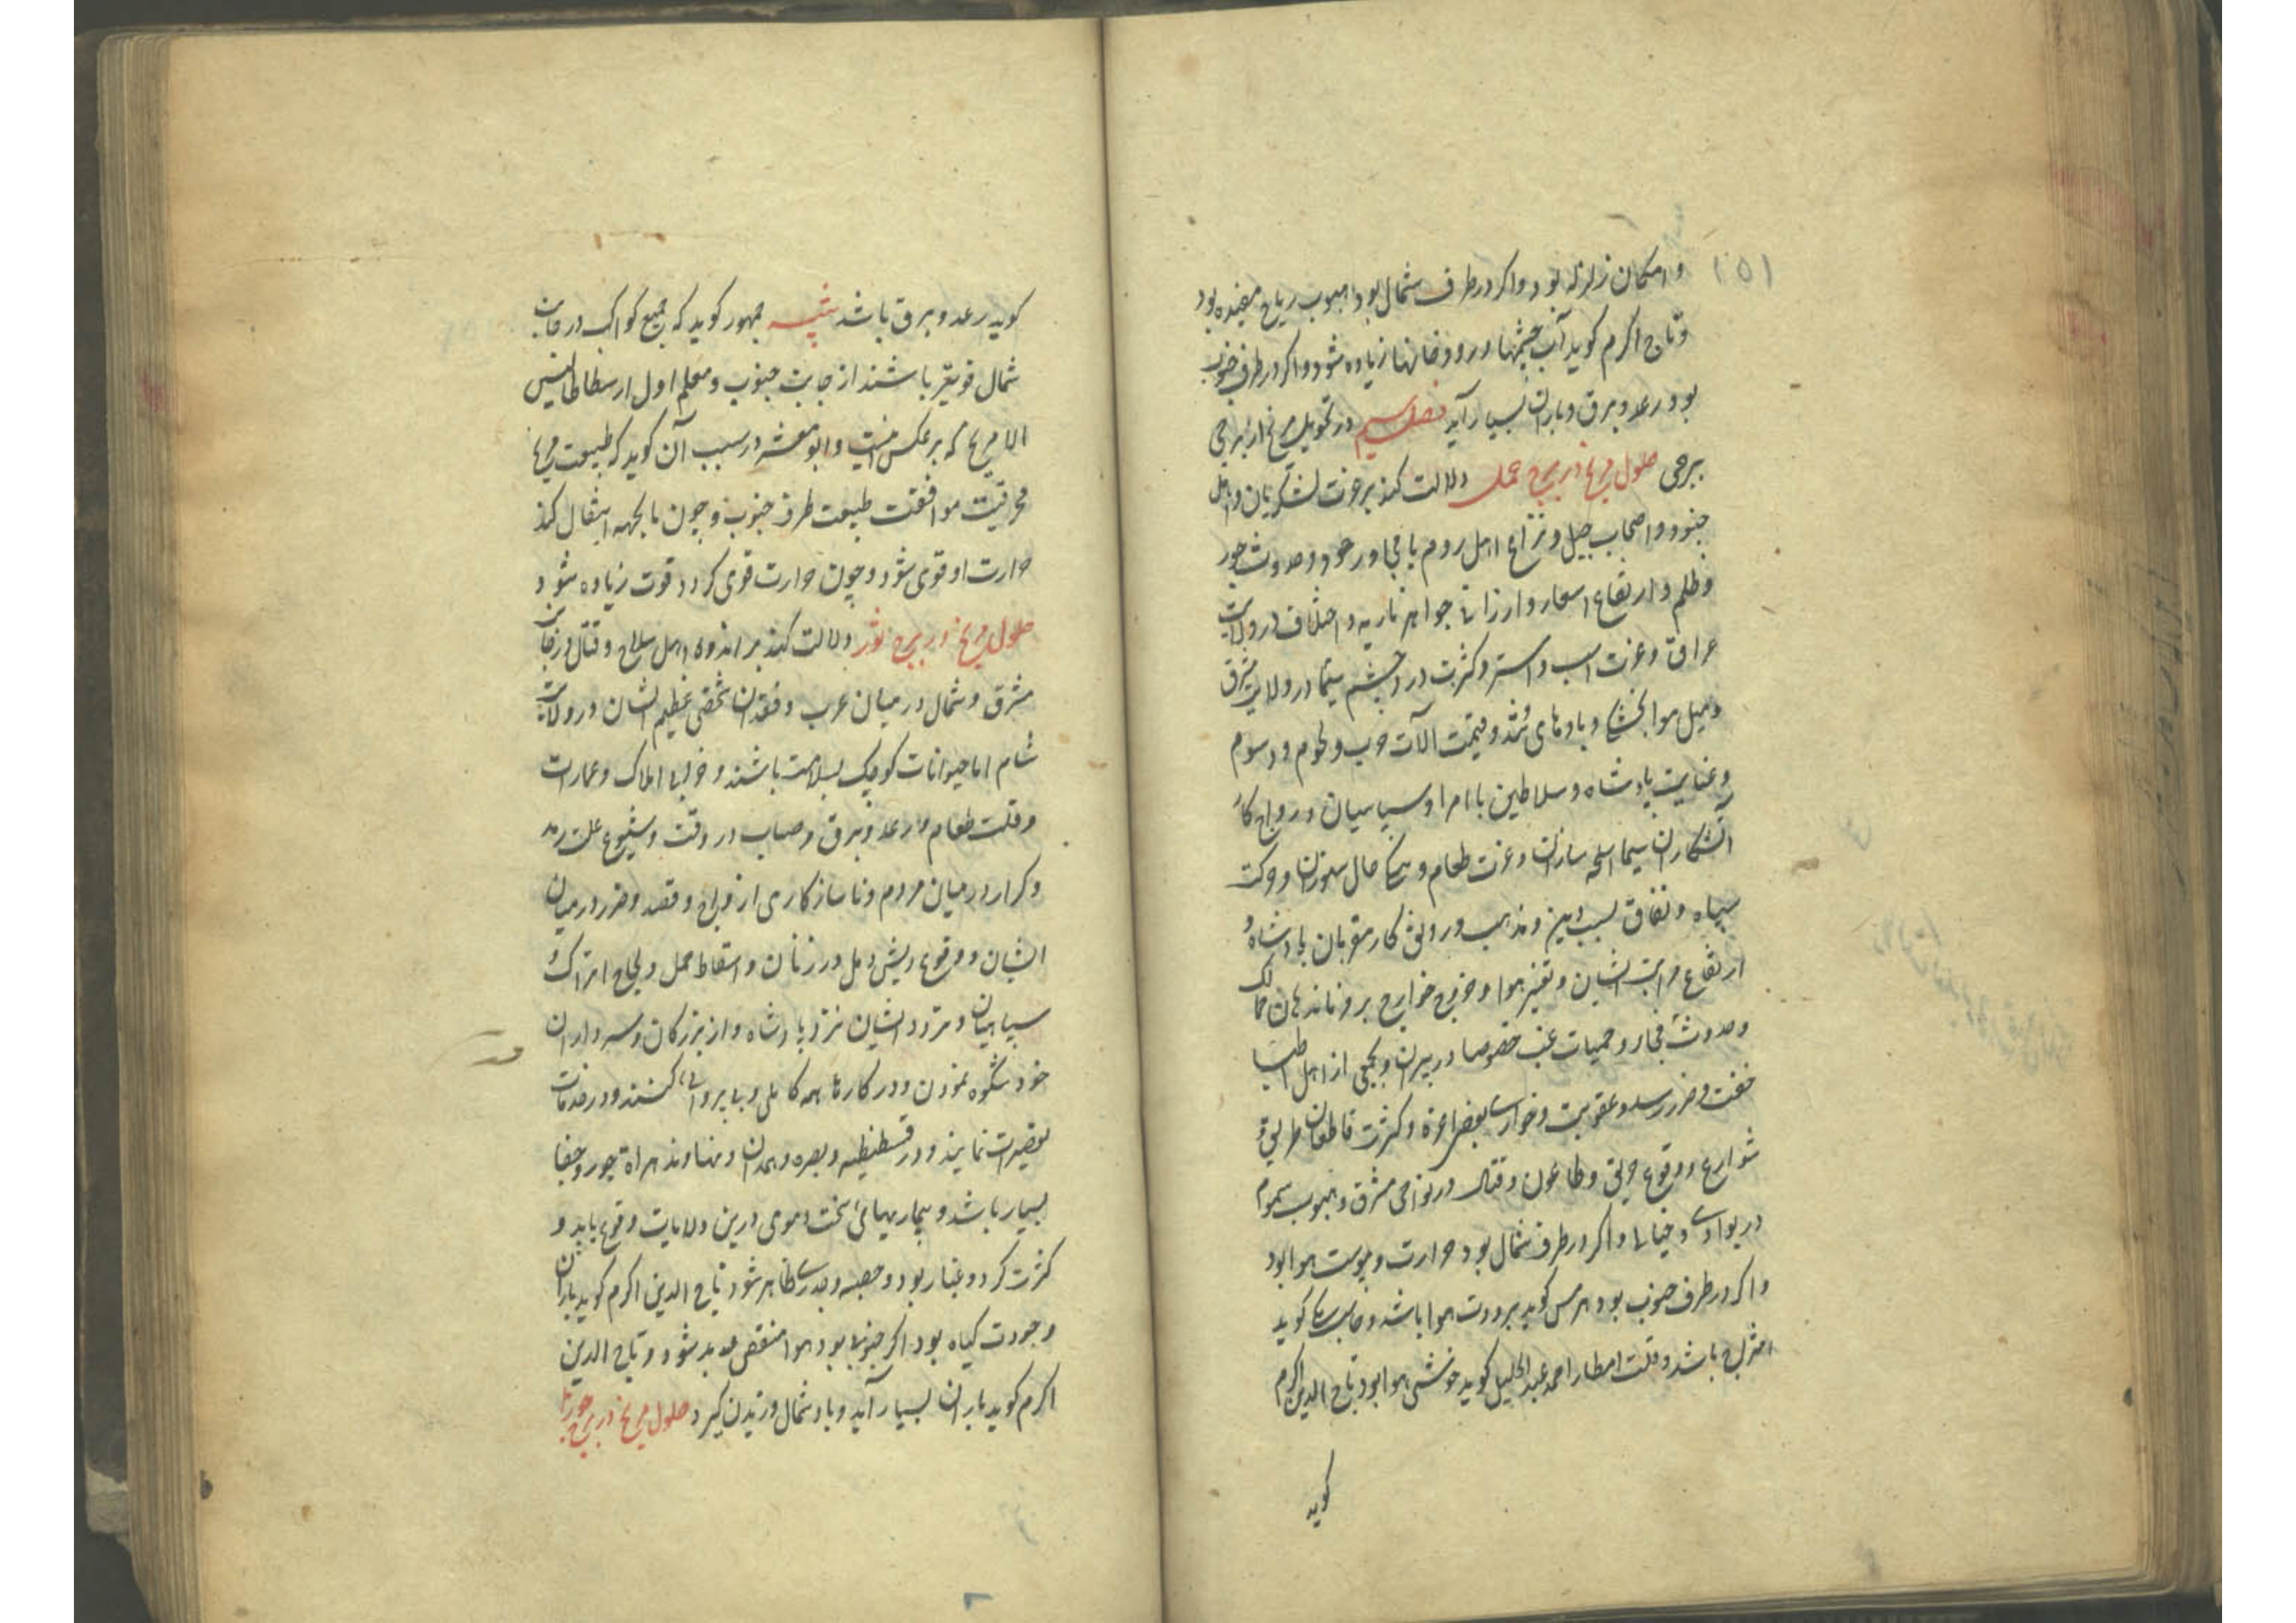 ۱۵۱
و امکان زلزله بود و اکر در طرف شمال بود هبوب ریاح مفیده بود
و تاج اکرم کوید آب چشمها و رودخانها زیاده شود و اکر در طرف جنوب
بود رعد و برق و باران بسیار آید فصل سیم در تحویل مریخ از برجی
ببرجی حلول مریخ در برج حمل دلالت کند بر عزت لشکریان و اهل
جنود و اصحاب جبل و نزاع اهل روم با مجاور خود و حدوث جور
و ظلم و ارتفاع اسعار و ارزانی جواهر ناریه و اختلاف در ولایت
عراق و عزت اسب و استر و کثرت درد چشم سیما در ولایت مشرق
و میل هوا بخشکی و بادهای تند و قیمت آلات حرب و لحوم و دسوم
و عنایت پادشاه و سلاطین با امرا و سپاهیان و رواج کار
آتشکاران سیما اسلحه سازان و عزت طعام و حال ستوران و حرکت
سپاه و نفاق بسبب دین و مذهب و رونق کار مقربان پادشاه و
ارتفاع مراتب ایشان و تغیر هوا و خروج خوارج بر فرماندهان ممالک
و حدوث فجار و حمیات غب خصوصا در پیران و بجمعی از اهل اطبا
خفت و ضرر رسد و عقوبت و خواری بعضی اعزه و کثرت قاطعان طریق و
شوارع و وقوع حریق و طاعون و قتال در نواحی مشرق و هبوب سموم
در بوادی و جبال و اکر در طرف شمال بود حرارت و یبوست هوا بود
و اکر در طرف جنوب بود هرمس کوید برودت هوا باشد و جاماسب کوید
امتزاج باشد و قلت امطار احمد عبد الجلیل کوید خوشی هوا بود تاج الدین اکرم
کوید
کوید رعد و برق باشد تنبیه جمهور کویند که جمیع کواکب در جانب
شمال قویتر باشند از جانب جنوب و معلم اول ارسطاطالیس
الا مریخ که برعکس است و ابو معشر در سبب آن کوید که طبیعت مریخ
محرقیت موافقت طبیعت طرف جنوب و چون بانجهه انتقال کند
حرارت او قوی شود و چون حرارت قوی کردد قوت زیاده شود
حلول مریخ در برج ثور دلالت کند بر اندوه اهل سلاح و قتال در جانب
مشرق و شمال در میان عرب و فقدان شخصی عظیم الشان در ولایت
شام اما حیوانات کوچک بسلامت باشند و خرابی املاک و عمارات
و قلت طعام و رعد و برق و سحاب در وقت و شیوع علت رمد
و کرار در میان مردم و ناسازکاری ازواج و قصد و ضرر در میان
ایشان و وقوع ریش و دمل در زنان و اسقاط حمل و لجاج اتراک و
سپاهیان و تردد ایشان نزد پادشاه و از بزرکان و سرداران
خود شکوه نمودن و در کارها همه کاهلی و بی پروائی کنند و در خدمات
تقصیرات نمایند و در قسطنطنیه و بصره و همدان و نهاوند و هراة جور و جفا
بسیار باشد و بیماریهای سخت دموی درین ولایات وقوع یابد و
کثرت کرد و غبار بود و حصبه و جدری ظاهر شود تاج الدین اکرم کوید باران
و جودت کیاه بود اکر جنوبی بود هوا منقص بود و تاج الدین
اکرم کوید باران بسیار آید و باد شمال وزیدن کیرد حلول مریخ در برج جوزا